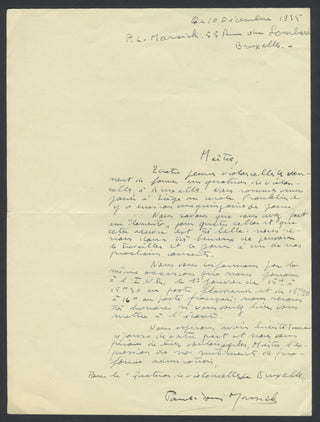 le 10 Décembre 1935
P. L. Marsick. 55 Rue du Lombard
Bruxelles. -
Maître,
Quatre jeunes violoncellistes viennent
de former un quatuor de violoncelles
à Bruxelles. Nous sommes venus
jouer à Liège au cercle
il y a environ une quinzaine de jours.
Nous savons que vous avez fait
pour quatre cellos et que
cette œuvre est très belle: nous
serions heureux de pouvoir
la travailler et la jouer à un de nos
prochains concerts.
Nous vous informons par la
même occasion que nous jouons
à l'I.N.R. le 1er janvier de 15h à
15h30 en poste flamand et de 15h30
à 16h en poste français; nous serions
très honorés si vous vouliez bien vous
mettre à l'écoute.
Nous espérons avoir bientôt une
réponse de votre part et nous vous
prions de bien vouloir agréer, Maître l'expression
de nos sentiments de profonde
admiration.
Pour le "Quatuor de violoncelles de Bruxelles
Paul Louis Marsick